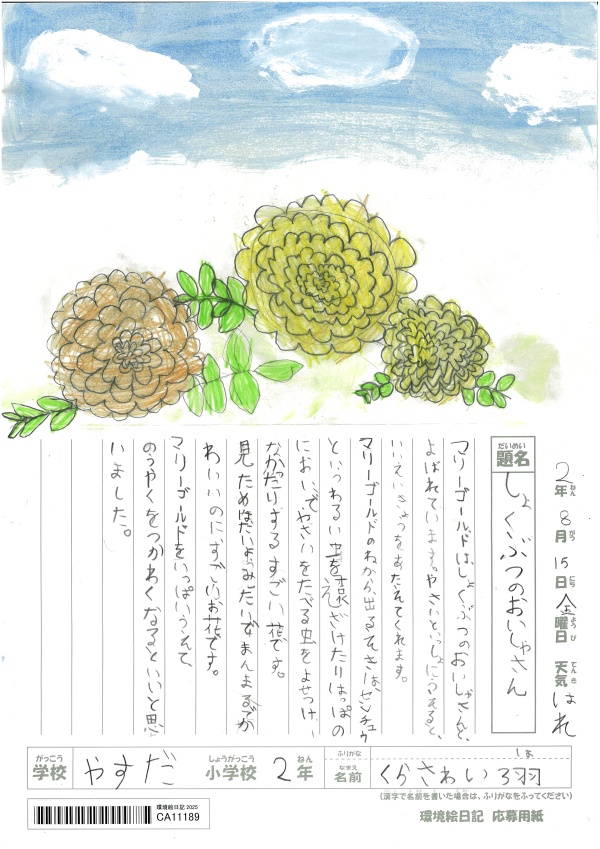 2年 8月 15日 金曜日 天気 はれ
ねん がつ にち ようび てんき
だいめい
題名
しょくぶつのおいしゃさん
マリーゴールドは、しょくぶつのおいしゃさんと、
よばれています。やさいといっしょにうえると、
いいえいきょうをあたえてくれます。
マリーゴールドのねから出るえきは、センチュウ
というわるい虫を遠ざけたりはっぱの
においで、やさいをたべる虫をよせつけ
なかったりするすごい花です。
見ためはたいようみたいでまんまるでか
わいいのにすごいお花です。
マリーゴールドをいっぱいうえて
のうやくをつかわくなるといいと思
いました。
がっこう
学校
やすだ
しょうがっこう
小学校
2年
ねん
ふりがな
なまえ
名前
くらさわい
羽
(漢字で名前を書いた場合は、ふりがなをふってください)
環境絵日記 2025
CA11189
環境絵日記 応募用紙